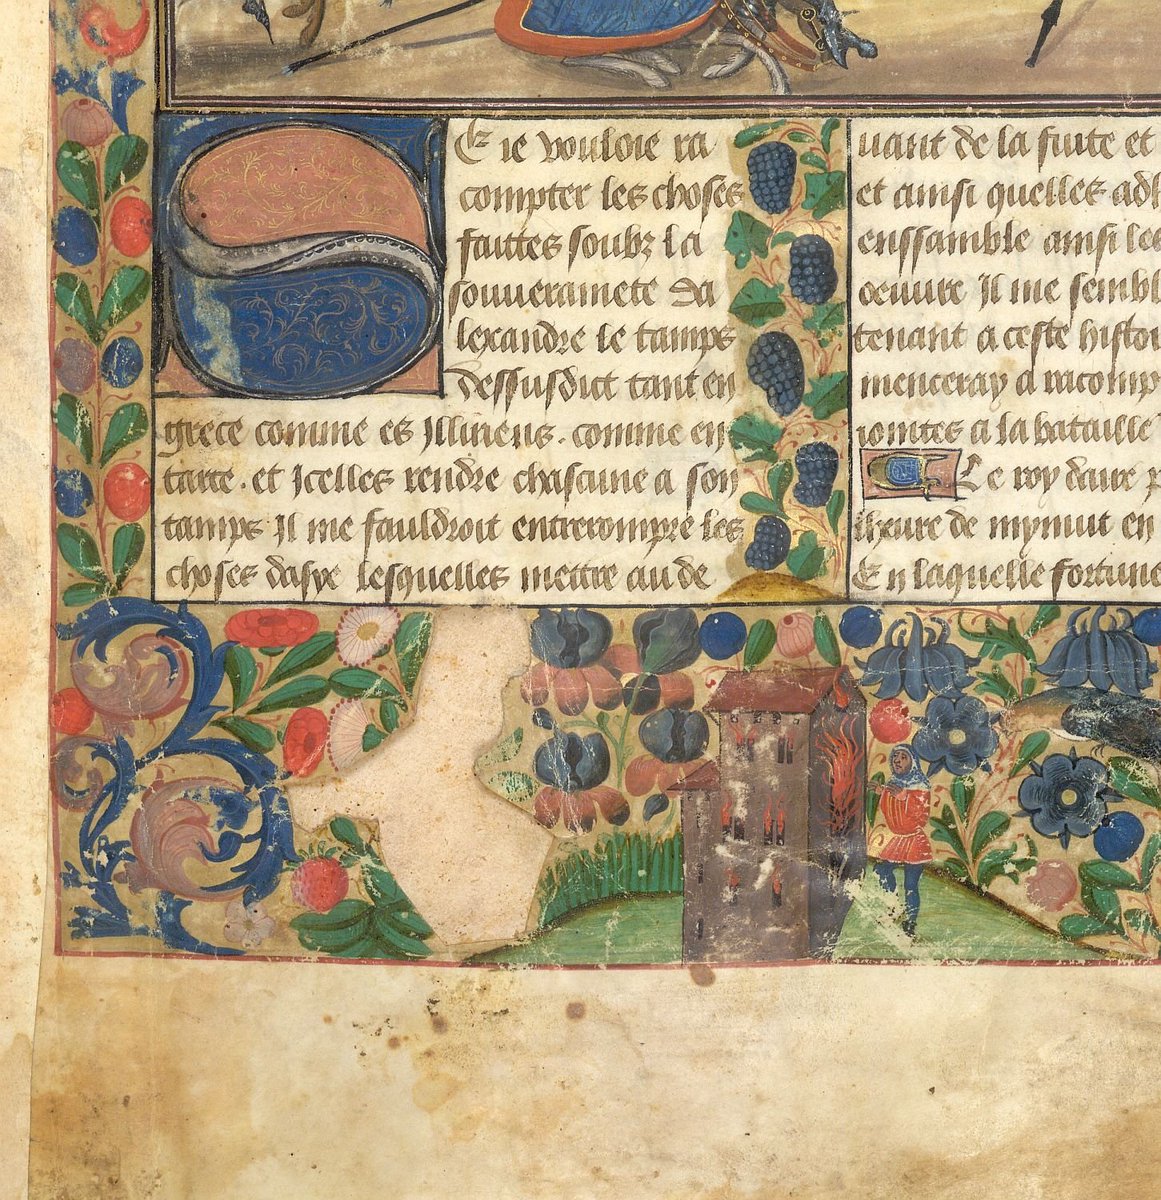 Se ie vouloie ra
compter les choses
faittes soubz la
souverainete da
lexandre le tamps
dessusdict tant en
grece comme es Illiriens. comme en
tarte. et Icelles rendre chascune a son
tamps Il me fauldroit entrerompre les
choses dasye lesquelles mettre au de
uant de la fuite et
et ainsi quelles
enssamble ainsi les
oeuure Il me
tenant a ceste
menceray a
iointes a la bataille
Le roy daire
lheure de mynuit en
En laquelle fortune